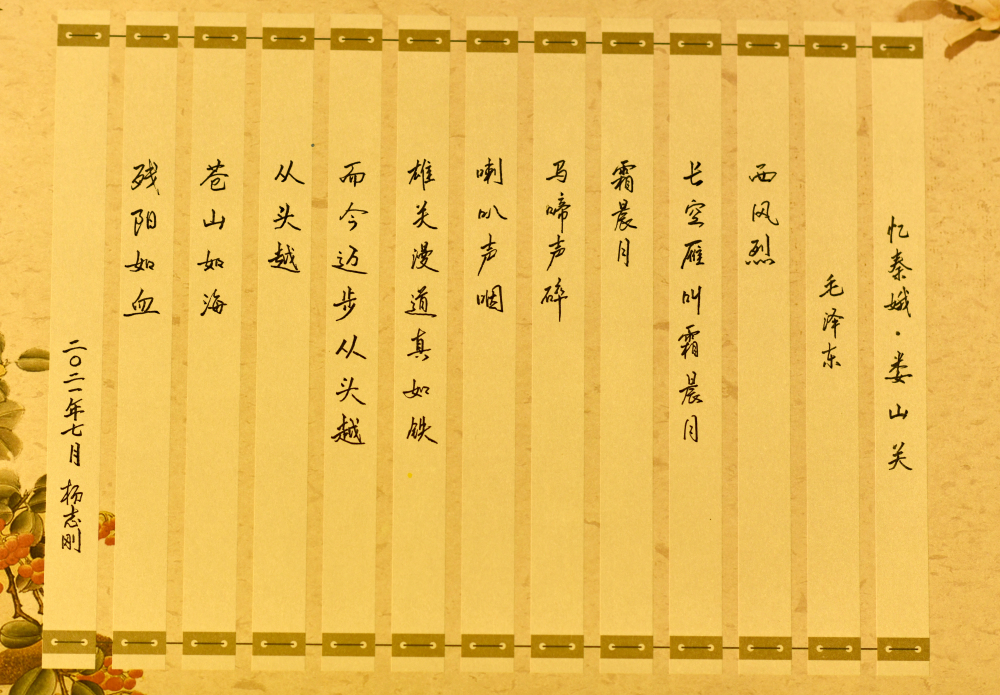 忆秦娥·娄山关
毛泽东
西风烈
长空雁叫霜晨月
霜晨月
马啼声碎
喇叭声咽
雄关漫道真如铁
而今迈步从头越
从头越
苍山如海
残阳如血
二〇二一年七月 杨志刚